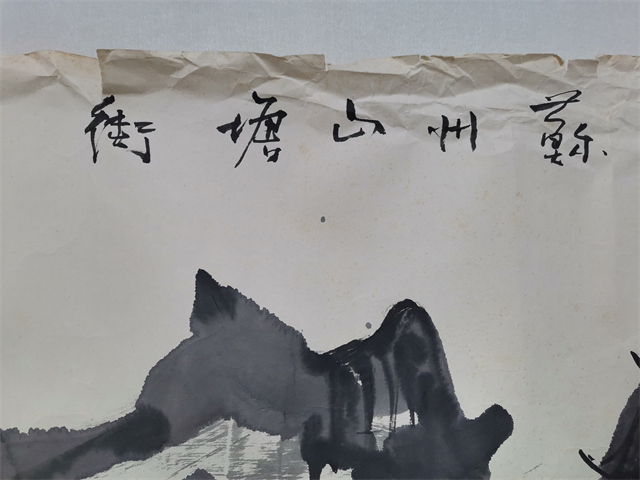 蘇州山塘街